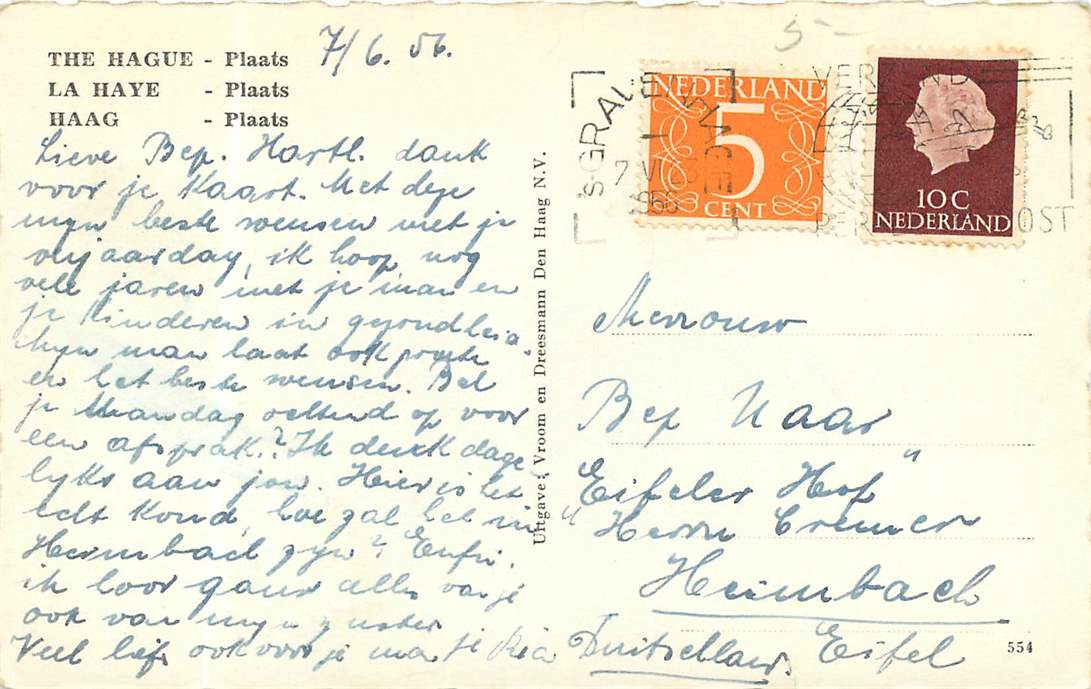 THE HAGUE - Plaats
LA HAYE - Plaats
HAAG - Plaats
7/6. 56.
5-
Lieve Bep. Hartl. dank
voor je Kaart. Met deze
myn beste wensen met je
verjaardag, ik hoop nog
vele jaren met je man en
je Kinderen in gezondheid
Myn man laat ook
en het beste wensen. Bel
je Maandag ochtend op voor
een afspraak? Ik denk dage
lyks aan jou. Hier is het
echt Koud, hoe zal het in
Heimbach zyn? Enfin.
ik hoor gauw alles van je
ook van myn zuster
Veel liefs ook voor je man Ria
Uitgave: Vroom en Dreesmann Den Haag N.V.
'SGRAVENHAGE
7 VI
NEDERLAND
5
CENT
10 C
NEDERLAND
POST
Mevrouw
Bep Naar
Eifeler Hof"
" Herrn Cremer
Heimbach
Duitschland. Eifel
554